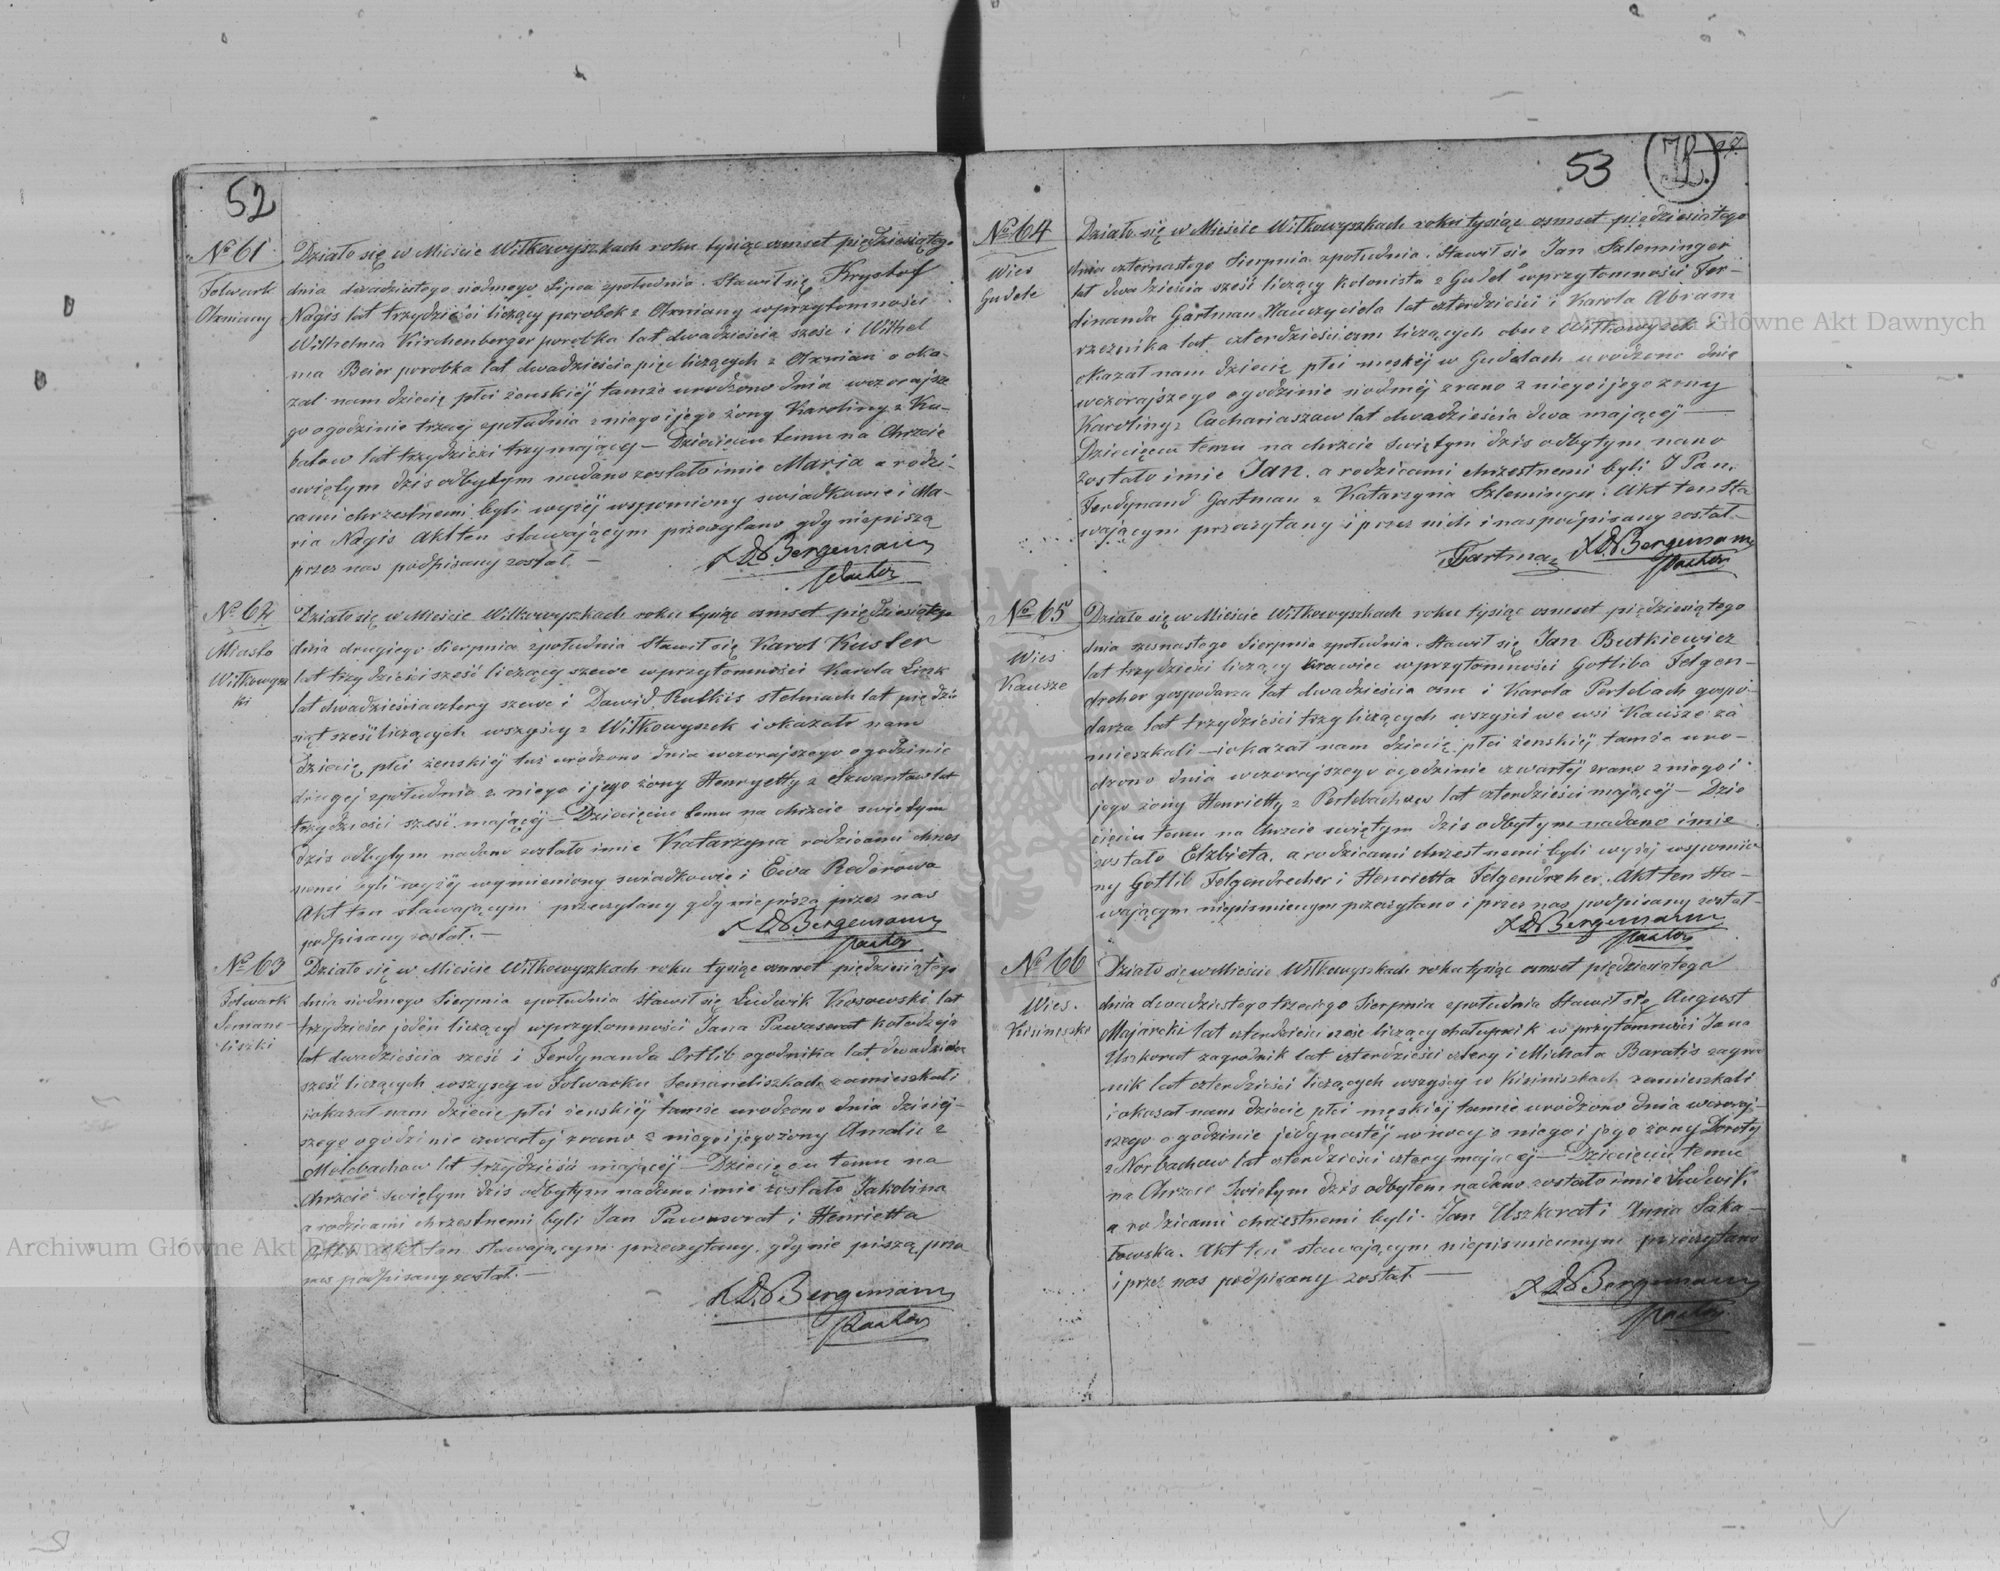 52
№ 61
Folwark
Olxniany
Działo się w Mieście Wiłkowyszkach roku tysiąc osmset piędziesiątego
dnia dwadziestego siodmego Lipca zpołudnia. Stawił się Krystof
Nagis lat trzydzieści liczący parobek z Olxniany wprzytomności
Wilhelma Kirchenberger parobka lat dwadzieścia sześć i Wilhel
ma Beier parobka lat dwadzieścia pięć liczących z Olxnian o oka-
zal nam dziecię płci żenskiéj tamże urodzone dnia wczorajsze
go ogodzinie trzeciej zpołudnia z niego i jego żony Karoliny z Ku-
batow lat trzydzieści trzy mającéj – Dziecięciu temu na Chrzcie
swiętym dzis odbytym nadano zostało imie Maria a rodzi-
cami chrzestnemi byli wyżéj wspomiony swiadkowie i Ma-
ria Nagis Akt ten stawającym przeczytano gdy niepiszą
przez nas podpisany został. –
Bergemann
Pastor
№ 62
Miasto
Wiłkowysz
ki
Działo się w Mieście Wiłkowyszkach roku tysiąc osmset piędziesiątego
dnia drugiego Sierpnia zpołudnia Stawił się Karol Kusler
lat trzydzieści sześć liczący szewc wprzytomności Karola Link
lat dwadzieścia cztery szewc i Dawid Rutkis stelmach lat piędzie
siąt sześć liczących wszyścy z Wiłkowyszek i okazało nam
Dziecię płci żenskiéj tuż urodzone dnia wczorajszego o godzinie
drugej zpołudnia z niego i jego żony Henryetty z Szwantow lat
trzydzieści sześć mającéj – Dziecięciu temu na chrzcie swietym
dzis odbytym nadano zostało imie Katarzyna rodzicami chrzes
nemi byli wyżéj wymieniony swiadkowie i Ewa Rederowa
Akt ten stawającym przeczytany gdy niepiszą przez nas
podpisany został. –
Bergemann
Pastor
№ 63
Folwark
Semane-
liszki
Działo się w Mieście Wiłkowyszkach roku tysiąc osmset piędziesiątego
dnia siodmego Sierpnia zpołudnia Stawił się Ludwik Kosowski lat
trzydzieści jeden liczący wprzytomności Jana Pawaserat Kołodzieja
lat dwadzieścia sześć i Ferdynanda Ortlib ogodnika lat dwadzieścia
sześć liczących wszyscy w Folwarku Semaneliszkach zamieszkali
i okazał nam dziecie płci żenskiéj tamże urodzono dnia dzisiej-
szego ogodzinie czwartej zrano z niego i jego żony Amalii z
Molebachow lat trzydzieści mającéj – Dziecięciu temu na
Chrzcie swiętym dzis odbytym nadano imie zostało Jakobina
a rodzicami chrzestnemi byli Jan Pawaserat i Henrietta
Ortlib Akt ten stawającym przeczytany, gdy nie piszą prze
nas podpisany został. –
Bergemann
Pastor
53
№ 64
Wies
Gudele
Działo się w Mieście Wiłkowyszkach roku tysiąc osmset piędziesiątego
dnia czternastego Sierpnia zpołudnia. Stawił sie Jan Szleminger
lat dwadzieścia sześć liczący Kolonista z Gudel wprzytomności Fer-
dinanda Gartman Nauczyciela lat czterdzieści i Karola Abram
rzeznika lat czterdzieści osm liczących obu z Wiłkowyszek i
okazał nam dziecię płci męskéj w Gudelach urodzone dnia
wczorajszego ogodzinie siodméj zrano z niego i jego żony
Karoliny z Cachariaszow lat dwadzieścia dwa mającéj –
Dziecięciu temu na chrzcie swiętym dzis odbytym nano
zostało imie Jan. a rodzicami chrzestnemi byli J Pan.
Ferdynand Gartman z Katarzyna Szleminger. Akt ten Sta
wającym przeczytany i przez nich i nas podpisany został –
Gartman
Bergemann
Pastor
№ 65
Wies
Kausze
Działo się w Mieście Wiłkowyszkach roku tysiąc osmset piędziesiątego
dnia szesnastego Sierpnia zpołudnia. Stawił się Jan Butkiewicz
lat trzydzieści liczący krawiec wprzytomności Gotliba Felgen-
dreher gospodarza lat dwadzieścia osm i Karola Perlebach gospo-
darza lat trzydzieści trzy liczących wszyści we wsi Kausze za
mieszkali – i okazał nam dziecię płci żenskiéj tamże uro-
dzono dnia wczorajszego ogodzinie czwartéj zrano z niego i
jego żony Henrietty z Perlebachow lat czterdzieści mającéj – Dzie
cięciu temu na Chrzcie swiętym dzis odbytym nadano imie
zostało Elzbieta. a rodzicami chrzestnemi byli wyżéj wspomio
ny Gotlib Felgendrecher i Henrietta Felgendreher. Akt ten Sta-
wającym niepismiennym przeczytano i przez nas podpisany został –
Bergemann
Pastor
№ 66
Wies.
Kisiniszki
Działo się w Mieście Wiłkowyszkach roku tysiąc osmset piędziesiątego
dnia dwadziestego trzeciego Sierpnia zpołudnia Stawił się August
Majarcki lat czterdzieści sześć liczący chałupnik w przytomności Jana
Uszkorat zagrodnik lat czterdzieści cztery i Michała Baratis zagro
nik lat czterdzieści liczących wszyścy w Kisiniszkach zamieszkali
i okazał nam dziecie płci męskiéj tamże urodzono dnia wczoraj-
szego o godzinie jedynastéj w nocy z niego i jego żony Doroty
z Norbachow lat czterdzieści cztery mającej – Dziecięciu temu
na Chrzcie Swiętym dzis odbytem nadano zostało imie Ludwik,
a rodzicami chrzestnemi byli. Jan Uszkorat i Anna Saka-
łowska. Akt ten stawającym niepismiennym przeczytano
i przez nas podpisany został –
Bergemann
Pastor
Archiwum Główne Akt Dawnych
Archiwum Główne Akt Dawnych